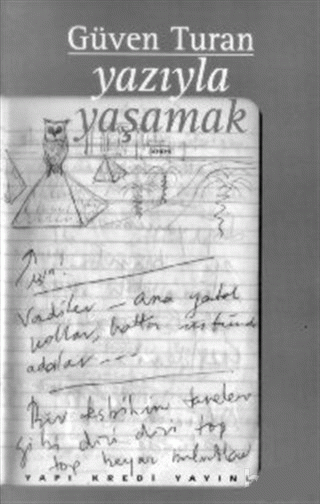 Güven Turan
yazıyla
yaşamak
için!
Vadiler – ana yatak
kollar, hatta üstünde
adalar ---
Bir tesbihin taneleri
gibi dizi dizi top
top beyaz bulutlar
YAPI KREDİ YAYINL